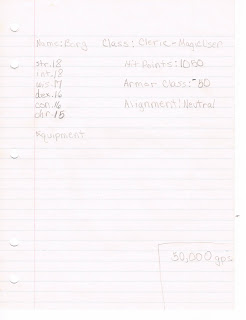 Name: Borg Class: Cleric-MagicUser
str.18
int.18
wis.17
dex.16
con.16
chr.15
Hit Points: 1050
Armor Class: -50
Alignment: Neutral
Equipment
50,000 gp's